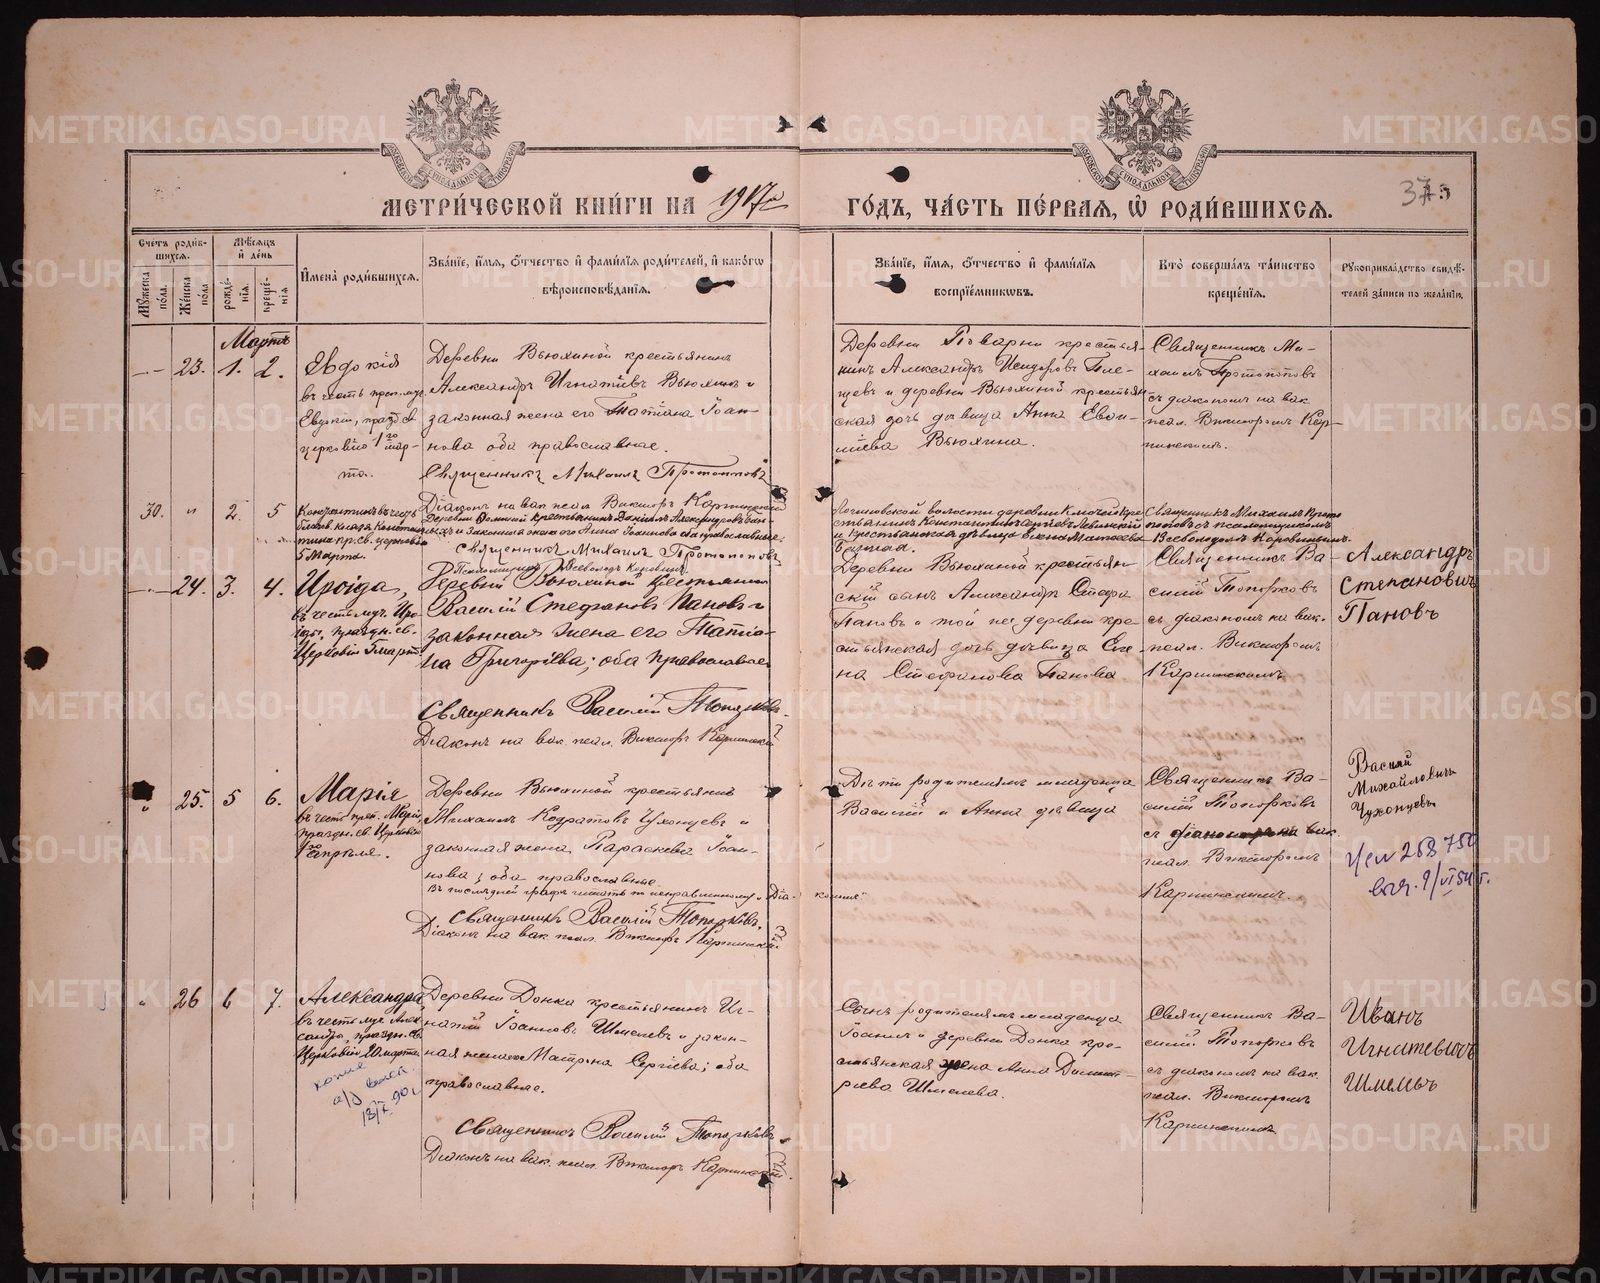 МЕТРИ́ЧЕСКОЙ КНИ́ГИ НА 1917й ГО́ДЪ, ЧА́СТЬ ПЕ́РВАЯ, Ѡ РОДИ́ВШИХСЯ.
Счетъ роди́вшихся.
Мѣ́сяцъ и де́нь
Му́жеска по́ла.
Же́нска по́ла.
рожде́нія.
креще́нія
Имена̀ роди́вшихся.
Зва́ніе, и́мя, о́тчество и фами́лія роди́телей, и како́гѡ
вѣроисповѣ́данія.
Зва́ніе, и́мя, о́тчество и фами́лія
воспріе́мниковъ.
Кто̀ соверша́лъ та́инство
креще́нія.
Рукоприкла́дство свидѣ́телей за́писи по жела́нію.
Мартъ
23. 1. 2.
Евдокія
въ честь преп. муч.
Евдокіи, празд. св.
церковію 1го мар-
та.
Деревни Вьюхиной крестьянинъ
Александръ Игнатіевъ Вьюхинъ и
законная жена его Татіана Іоан-
нова оба православные.
Священникъ Михаилъ Протопоповъ
Діаконъ на вак. псал. Викторъ Карпинскій
Деревни Поварни крестья-
нинъ Александръ Исидоровъ Пле-
щевъ и деревни Вьюхиной крестьян-
ская дочь дѣвица Анна
Вьюхина.
Священникъ Ми-
хаилъ Протопоповъ
съ діакономъ на вак.
псал. Викторомъ Кар-
пинскимъ.
30. " 2. 5
Константинъ въ честь
благов. князя Констан-
тина пр. св. церковію
5 Марта.
крестьянинъ Даніилъ Александровъ
и законная жена его Анна Іоаннова оба православные.
Священникъ Михаилъ Протопоповъ
Псаломщикъ Всеволодъ Коровинъ
волости деревни Ключей кре-
стьянинъ Константинъ Сергіевъ
и крестьянская дѣвица Елена Матѳеева
Священникъ Михаилъ Прото-
поповъ съ псаломщикомъ
Всеволодомъ Коровинымъ.
24. 3. 4.
Ироіда,
въ честь муч. Иро-
іды, праздн. св.
Церковію 5 март.
Деревни Вьюхиной крестьянинъ
Василій Стефановъ Пановъ и
законная жена его Татіа-
на Григоріева; оба православные
Священникъ Василій Топорковъ
Діаконъ на вак. псал. Викторъ Карпинскій
Деревни Вьюхиной крестьян-
скій сынъ Александръ Стефа.
Пановъ и той же деревни кре-
стьянская дочь дѣвица Еле-
на Стефанова Панова
Священникъ Ва-
силій Топорковъ
съ діакономъ на вак.
псал. Викторомъ
Карпинскимъ
Александръ
Степановичъ
Пановъ
" 25. 5 6.
Марія
въ честь преп. Маріи,
праздн. св. Церковію
1го апрѣля.
Деревни Вьюхиной крестьянинъ
Михаилъ Кодратовъ Чухонцевъ и
законная жена Параскева Іоан-
нова; оба православные.
Въ послѣдней графѣ читать по исправленному „Діа-кономъ"
Священникъ Василій Топорковъ.
Діаконъ на вак. псал. Викторъ Карпинскій
Дѣти родителямъ младенца
Василій и Анна дѣвица
Священникъ Ва-
силій Топорковъ
съ діакономъ на вак.
псал. Викторомъ
Карпинскимъ.
Василий
Михайловичъ
Чухонцевъ
268750
" 26 6 7.
Александра,
въ честь муч. Алек-
сандры, праздн. св.
Церковію 20 марта
копие
Деревни Донка крестьянинъ Иг-
натій Іоанновъ Шмелевъ и закон-
ная жена его Матрона Сергіева; оба
православные.
Священникъ Василій Топорковъ
Діаконъ на вак. псал. Викторъ Карпинскій.
Сынъ родителямъ младенца
Іоаннъ и деревни Донка кре-
стьянская жена Анна Димит-
ріева Шмелева.
Священникъ Ва-
силій Топорковъ
съ діакономъ на вак.
псал. Викторомъ
Карпинскимъ
Иванъ
Игнатевичъ
Шмелевъ
METRIKI.GASO-URAL.RU